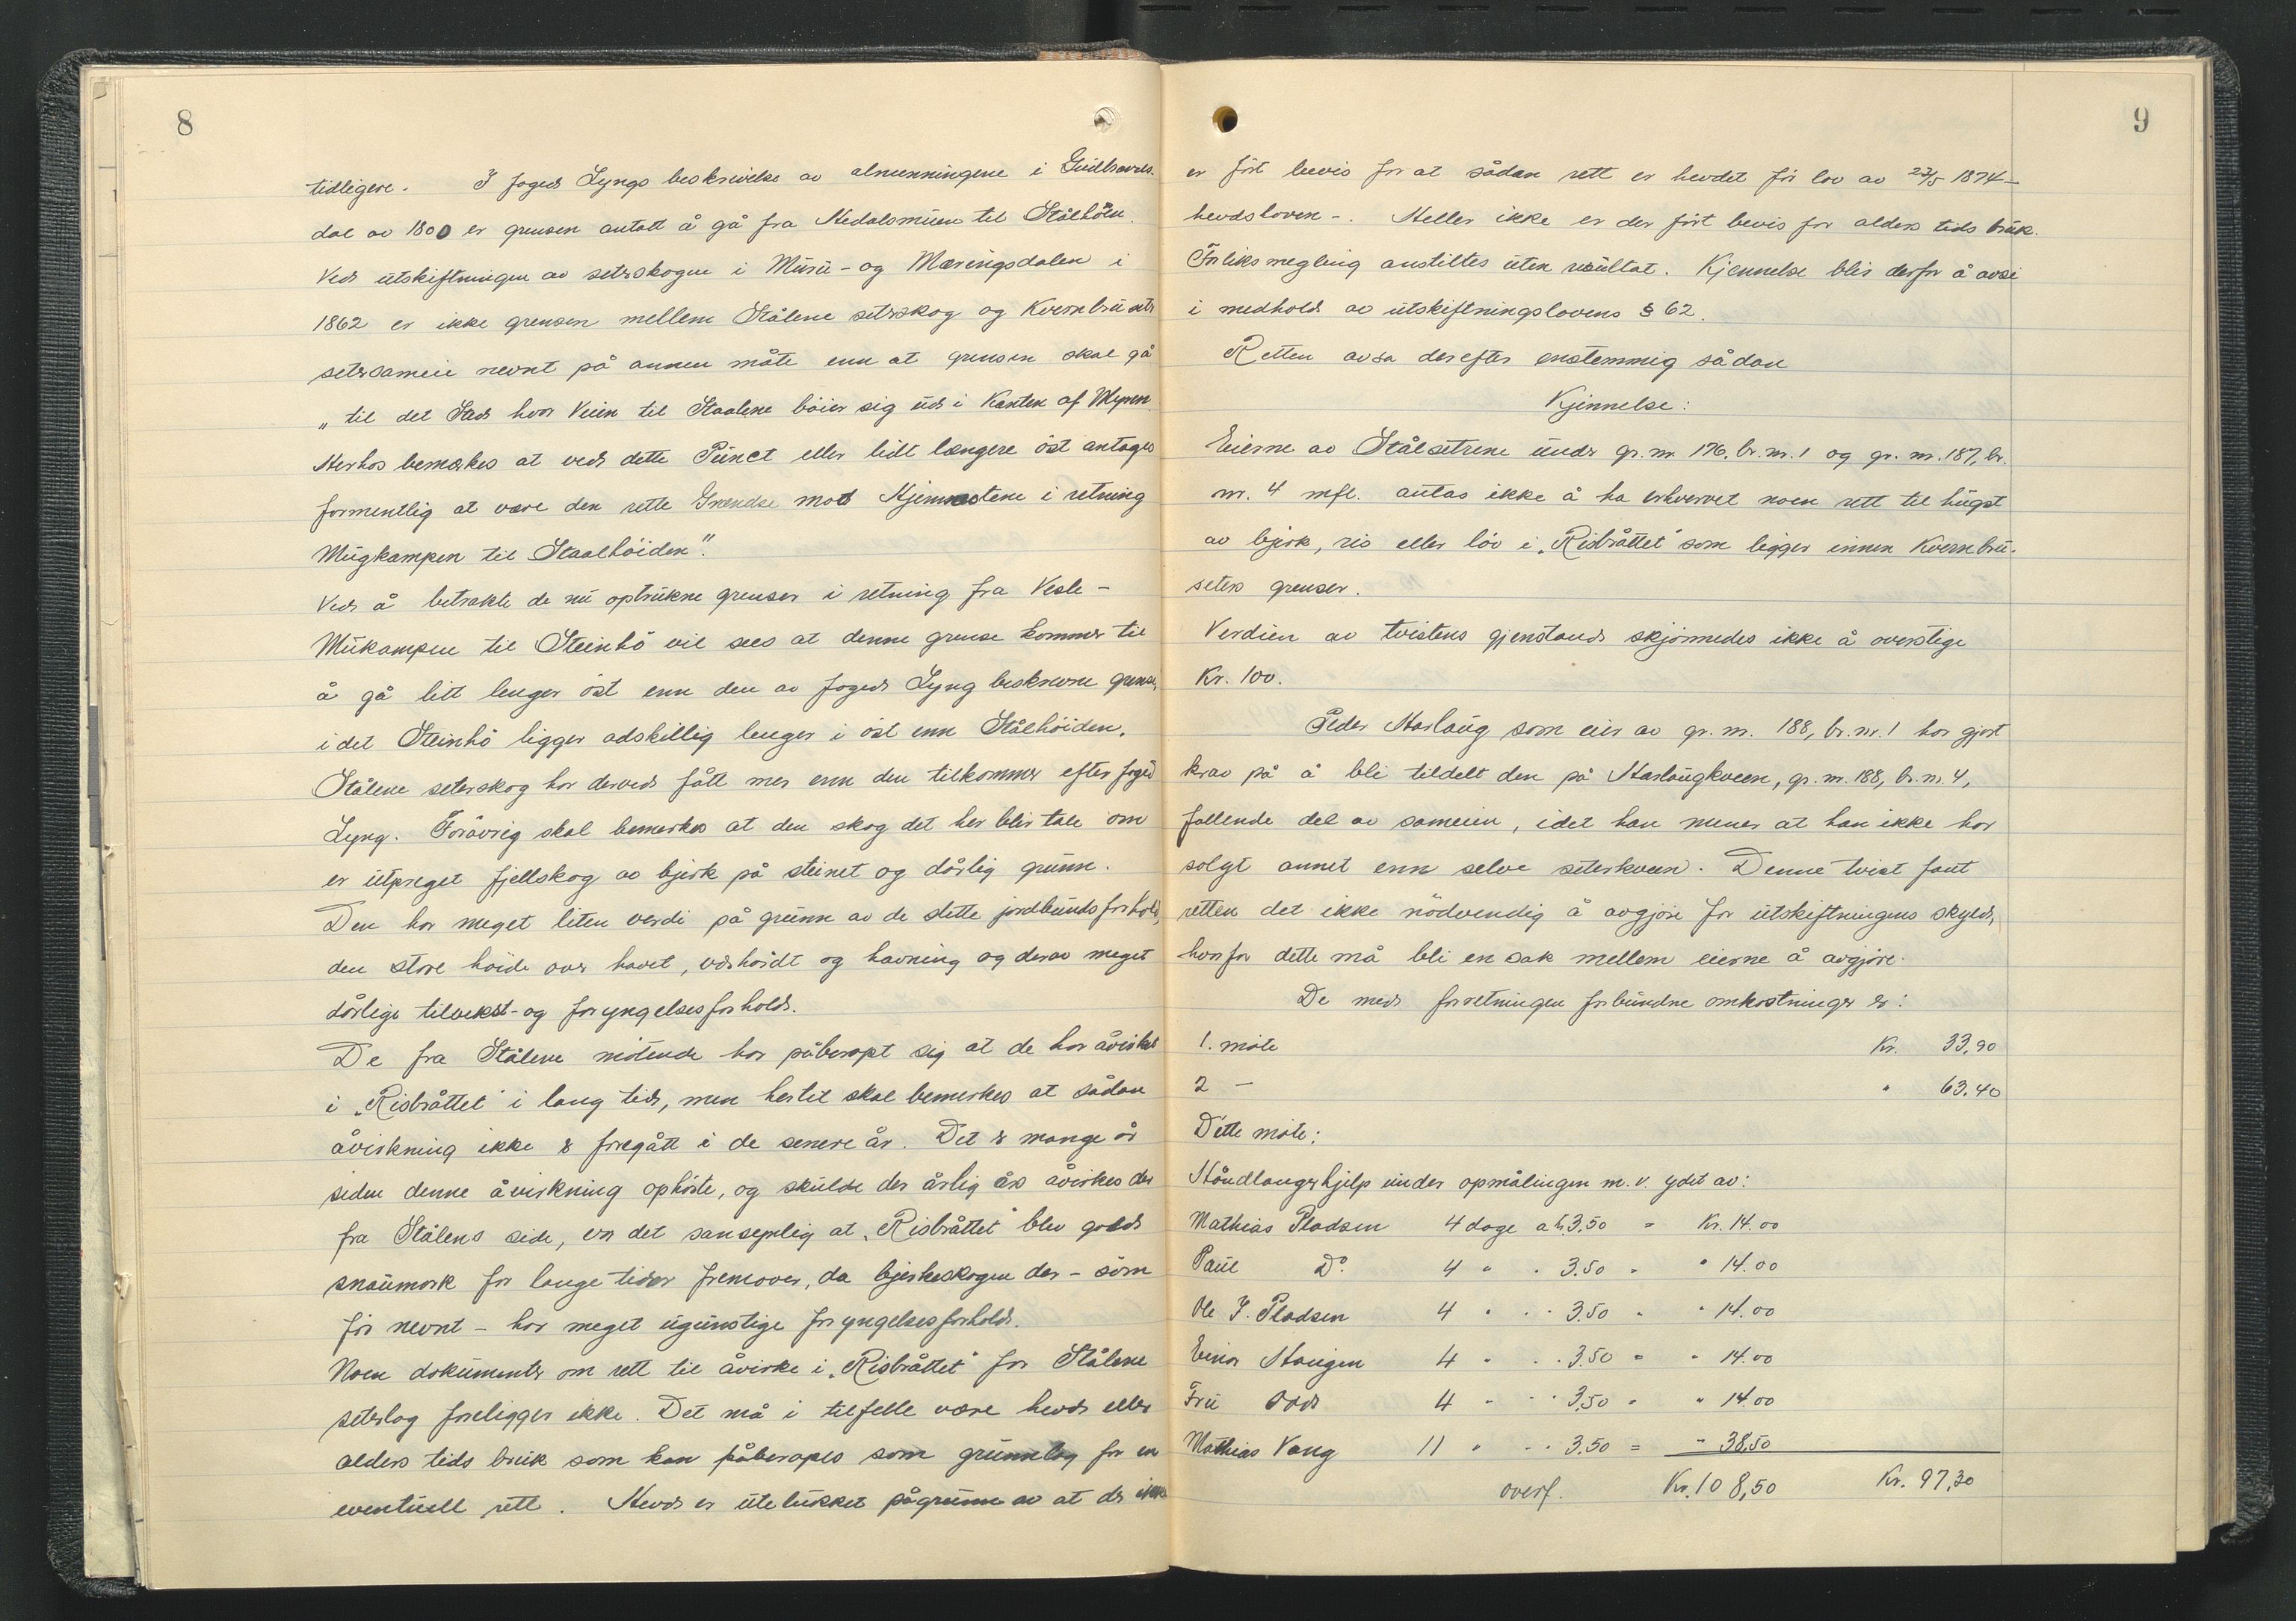 8
tidligere. I foged Lyngs beskrivelse av almenningene i Gudbrands-
dal av 1800 er grensen antatt å gå fra Hedalsmuen til Stålhöen.
Ved utskiftningen av seterskogen i Muru- og Mæringsdalen i
1862 er ikke grensen mellem Stålene seterskog og Kvernbru seter
setersameie nevnt på annen måte enn at grensen skal gå
„til det Sted hvor Veien til Staalene böier sig ud i Kanten af Mynn.
Herhos bemerkes at ved dette Punct eller lidt længere öst antages
formentlig at være den rette Grændse mod Hjemmestene i retning
Mugkampen til Staalhöiden".
Ved å betrakte de nu optrukne grenser i retning fra Vesle-
Mukampen til Steinhö vil sees at denne grense kommer til
å gå litt lenger öst enn den av foged Lyng beskrevne grense,
idet Steinhö ligger adskillig lenger i öst enn Stålhöiden.
Stålene seterskog har derved fått mer enn den tilkommer efter foged
Lyng. Forövrig skal bemerkes at den skog det her blir tale om
er utpreget fjellskog av bjerk på steinet og dårlig grunn.
Den har meget liten verdi på grunn av de slette jordbundsforhold,
den store höide over havet, værhårdt og havning og derav meget
dårlige tilvekst- og foryngelsesforhold.
De fra Stålene mötende har påberopt sig at de har åvirket
i „Risbråttet" i lang tid, men hertil skal bemerkes at sådan
åvirkning ikke er foregått i de senere år. Det er mange år
siden denne åvirkning ophörte, og skulde der årlig års åvirkes der
fra Stålens side, er det sansynlig at „Risbråttet" blev gold
snaumark for lange tider fremover, da bjerkeskogen der - som
för nevnt - har meget ugunstige foryngelsesforhold.
Noen dokumenter om rett til åvirke i „Risbråttet" for Stålene
seterlag foreligger ikke. Det må i tilfelle være hevd eller
alders tids bruk som kan påberopes som grunnlag for en
eventuell rett. Hevd er utelukket pågrunn av at der ikke
9
er fört bevis for at sådan rett er hevdet för lov av 23/5 1874 -
hevdsloven -. Heller ikke er der fört bevis for alders tids bruk.
Forliksmegling anstiltes uten resultat. Kjennelse blir derfor å avsi
i medhold av utskiftningslovens § 62.
Retten avsa derefter enstemmig sådan
Kjennelse:
Eierne av Stålsetrene under gr. nr. 176, br. nr. 1 og gr. nr. 187, br.
nr. 4 mfl. antas ikke å ha erhvervet noen rett til hugst
av bjerk, ris eller löv i „Risbråttet" som ligger innen Kvernbru-
seters grenser.
Verdien av tvistens gjenstand skjönnedes ikke å overstige
Kr. 100.
Peder Harlaug som eier av gr. nr. 188, br. nr. 1 har gjort
krav på å bli tildelt den på Harlaugkveen, gr. nr. 188, br. nr. 4,
fallende del av sameiem, idet han mener at han ikke har
solgt annet enn selve seterkveen. Denne tvist fant
retten det ikke nödvendig å avgjöre for utskiftningens skyld,
hvorfor dette må bli en sak mellem eierne å avgjöre.
De med forretningen forbundne omkostninger er:
1. möte Kr. 33,90
2 - " 63.40
Dette möte:
Håndlangerhjelp under opmålingen m. v. ydet av:
Mathias Pladsen 4 dage a k. 3,50 = Kr. 14.00
Paul Do. 4 " " 3.50 = " 14.00
Ole J. Pladsen 4 " " 3.50 = " 14.00
Einar Haugen 4 " " 3.50 = " 14.00
Fru Odd 4 " " 3,50 = " 14.00
Mathias Vang 11 " " 3.50 = " 38,50
overf. Kr. 108,50 Kr. 97,30